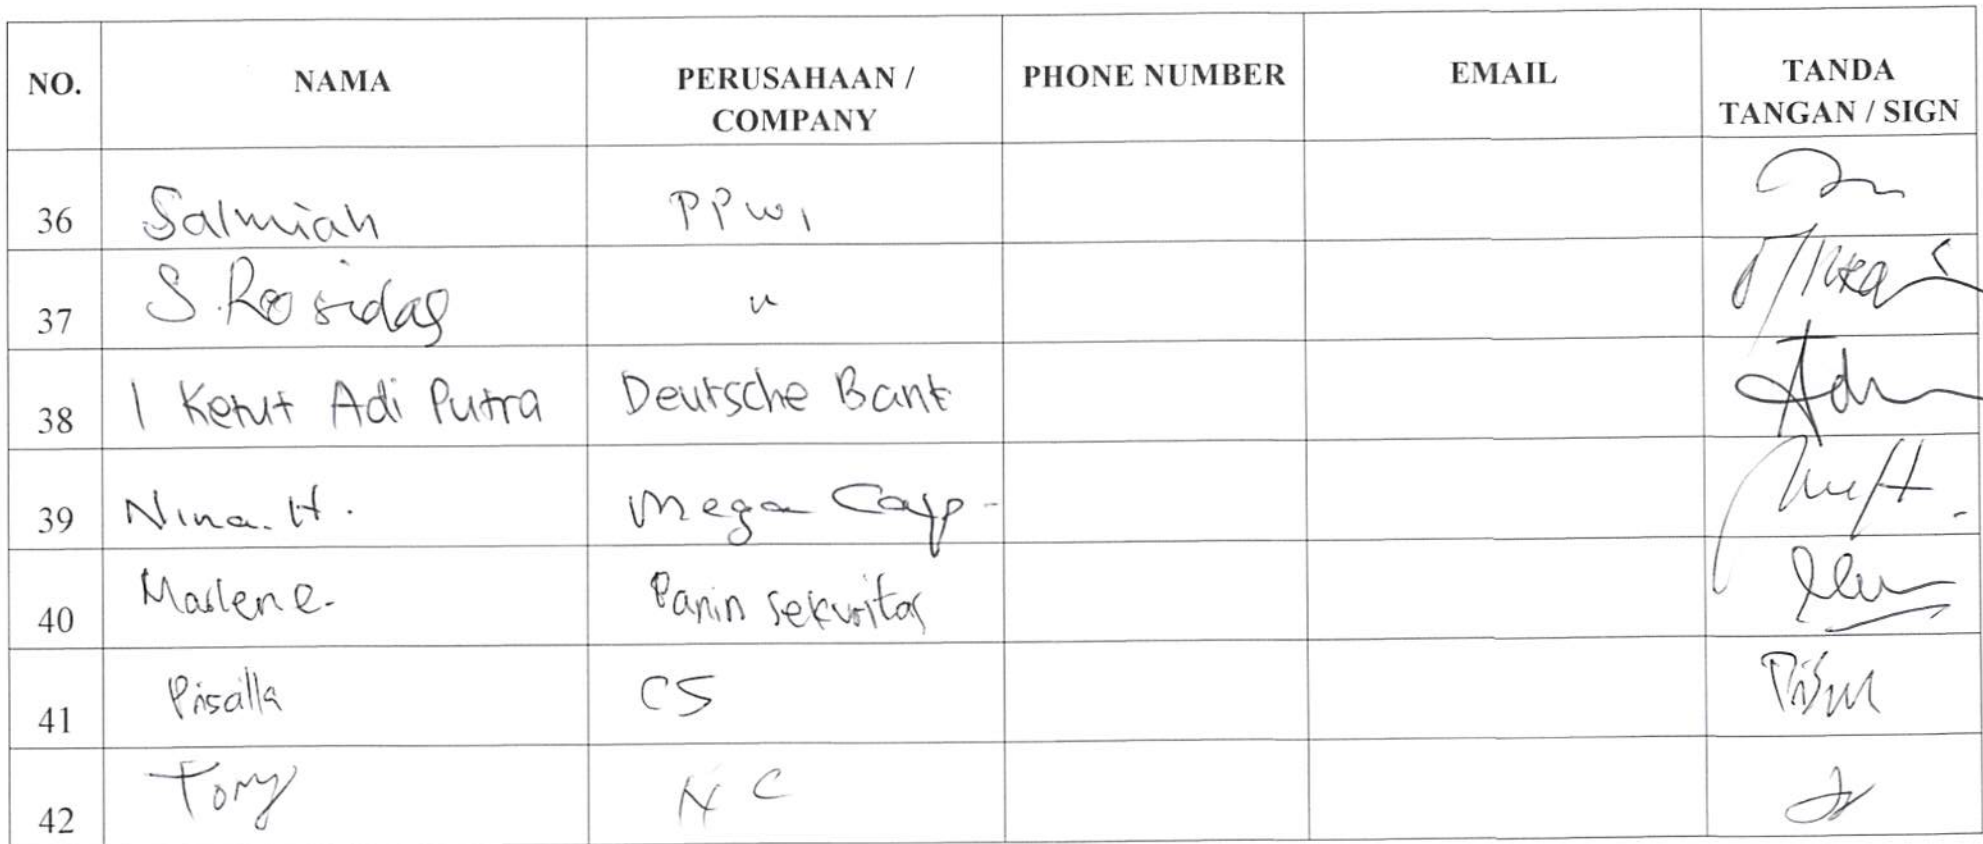 NO. NAMA PERUSAHAAN / COMPANY PHONE NUMBER EMAIL TANDA TANGAN / SIGN
36 Salmiah PPWI
37 S. Rosidas "
38 I Ketut Adi Putra Deutsche Bank
39 Nina. H. Mega Corp-
40 Marlene. Panin Sekuritas
41 Priscilla CS
42 Tony NC